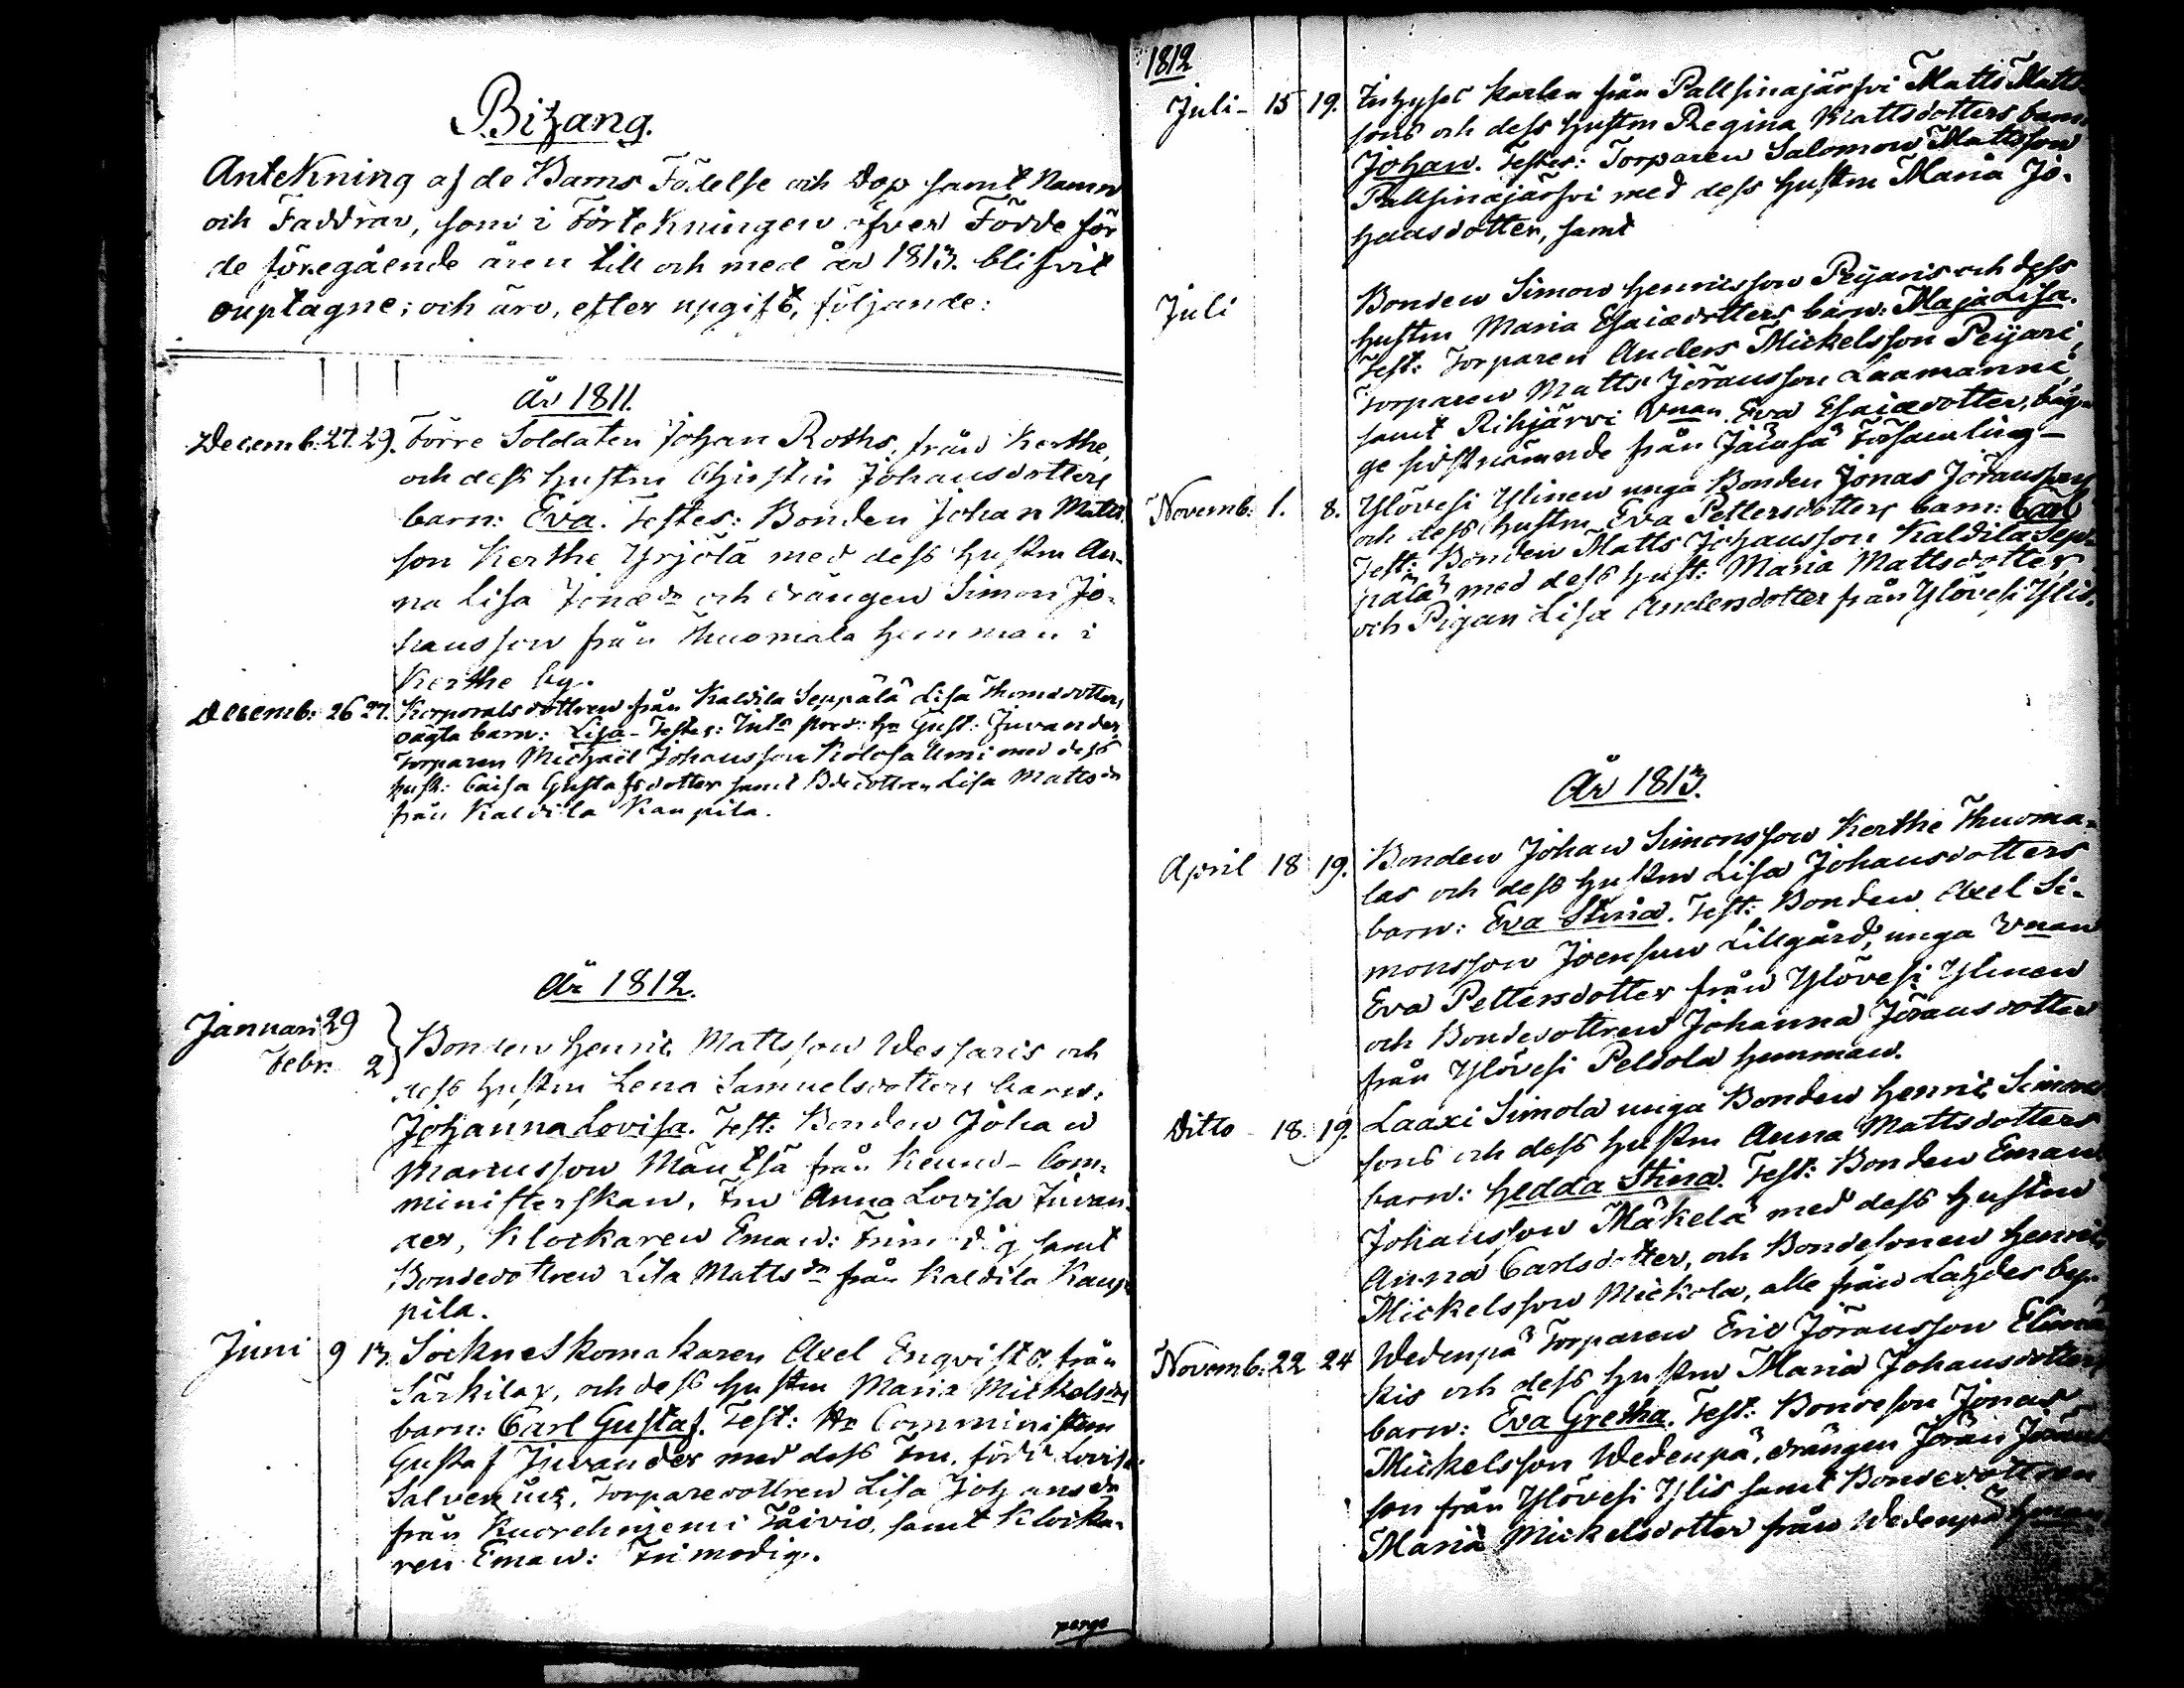 Bihang.
Antekning af de Barns Födelse och Dop samt Namn
och Faddrar, som i Förtekningen öfver Födde för
de föregående åren till och med år 1813. blifvit
ouptagne; och äro, efter upgift, följande:
år 1811.
Decemb: 27. 29. Förre Soldaten Johan Roths, från Kerthe,
och dess hustru Christin Johansdotters
barn: Eva. Testes: Bonden Johan Matts
son Kerthe Yrjölä med dess hustru An-
na Lisa Jonædr och drängen Simon Jo-
hansson från Thuomala hemman i
Kerthe by.
Decemb: 26 27. Korporalsdottren från Kaldila Seppälä Lisa Thomædotters
oägta barn: Lisa - Testes: Hr Gust: Juvander,
Torparen Michael Johansson med dess
hustr: Caisa Gustafsdotter samt Bdedottren Lisa Mattsdr
från Kaldila Kaupila.
År 1812.
Januari 29
Febr: 2 Bonden Henric Mattsson Wessaris och
dess hustru Lena Samuelsdotters barn:
Johanna Lovisa. Test: Bonden Johan
Marcusson Mäntsä från Com-
ministerskan, Fru Anna Lovisa Juvan-
der, Klockaren Eman: Frimodig samt
Bondedottren Lisa Mattsdr från Kaldila Kaup-
pila.
Juni 9 13. Sockneskomakaren Axel Enqvists från
Särkilax, och dess hustru Maria Mickelsdrs
barn: Carl Gustaf. Test: Hr Comministern
Gustaf Juvander med dess Fru, född Lovisa
Salvenius, Torparedottren Lisa Johansdr
från Kuorehniemi Tåivio, samt Klocka-
ren Eman: Frimodig.
perge
1812
Juli - 15 19. Inhyses karlen från Pallsinajärfvi Matts Matts-
sons och dess hustru Regina Mattsdotters barn:
Johan. Testes: Torparen Salomon Mattsson
Pallsinajärfvi med dess hustru Maria Jo-
hansdotter, samt
Juli Bonden Simon Henricsson Peijaris och dess
hustru Maria Esaiædotters barn: Maja Lisa.
Test: Torparen Anders Mickelsson Peijari,
Torparen Matts Jöransson Laamanni,
samt Rihjärvi Vnan Eva Esaiædotter, bäg-
ge sidstnämnde från Jämsä Församling -
Novemb: 1. 8. Ylövesi Ylinen unga Bonden Jonas Jöranssons
och dess hustru Eva Pettersdotters barn: Carl
Test: Bonden Matts Johansson Kaldila Sep-
pälä med dess hust: Maria Mattsdotter,
och Pigan Lisa Andersdotter från Ylövesi Ylis.
År 1813.
April 18 19. Bonden Johan Simonsson Kerthe Thuoma-
las och dess hustru Lisa Johansdotters
barn: Eva Stina. Test: Bonden Axel Si-
monsson Joensuu Lillgård, unga Vnan
Eva Pettersdotter från Ylövesi Ylinen
och Bondedottren Johanna Jöransdotter
från Ylövesi Peldola hemman.
Ditto - 18. 19. Laaxi Simola unga Bonden Henric Simons
sons och dess hustru Anna Mattsdotters
barn: Hedda Stina. Test: Bonden Eman:
Johansson Mäkelä med dess hustru
Anna Carlsdotter, och Bondesonen Henric
Mickelsson Mickola, alle från Lahdes by.
Novemb: 22 24 Wedenpä Torparen Eric Jöransson
kis och dess hustru Maria Johansdotters
barn: Eva Gretha. Test: Bondeson Jonas
Mickelsson Wedenpä, drängen Jöran Jörans
son från Ylövesi Ylis samt Bondedottren
Maria Mickelsdotter från Wedenpä